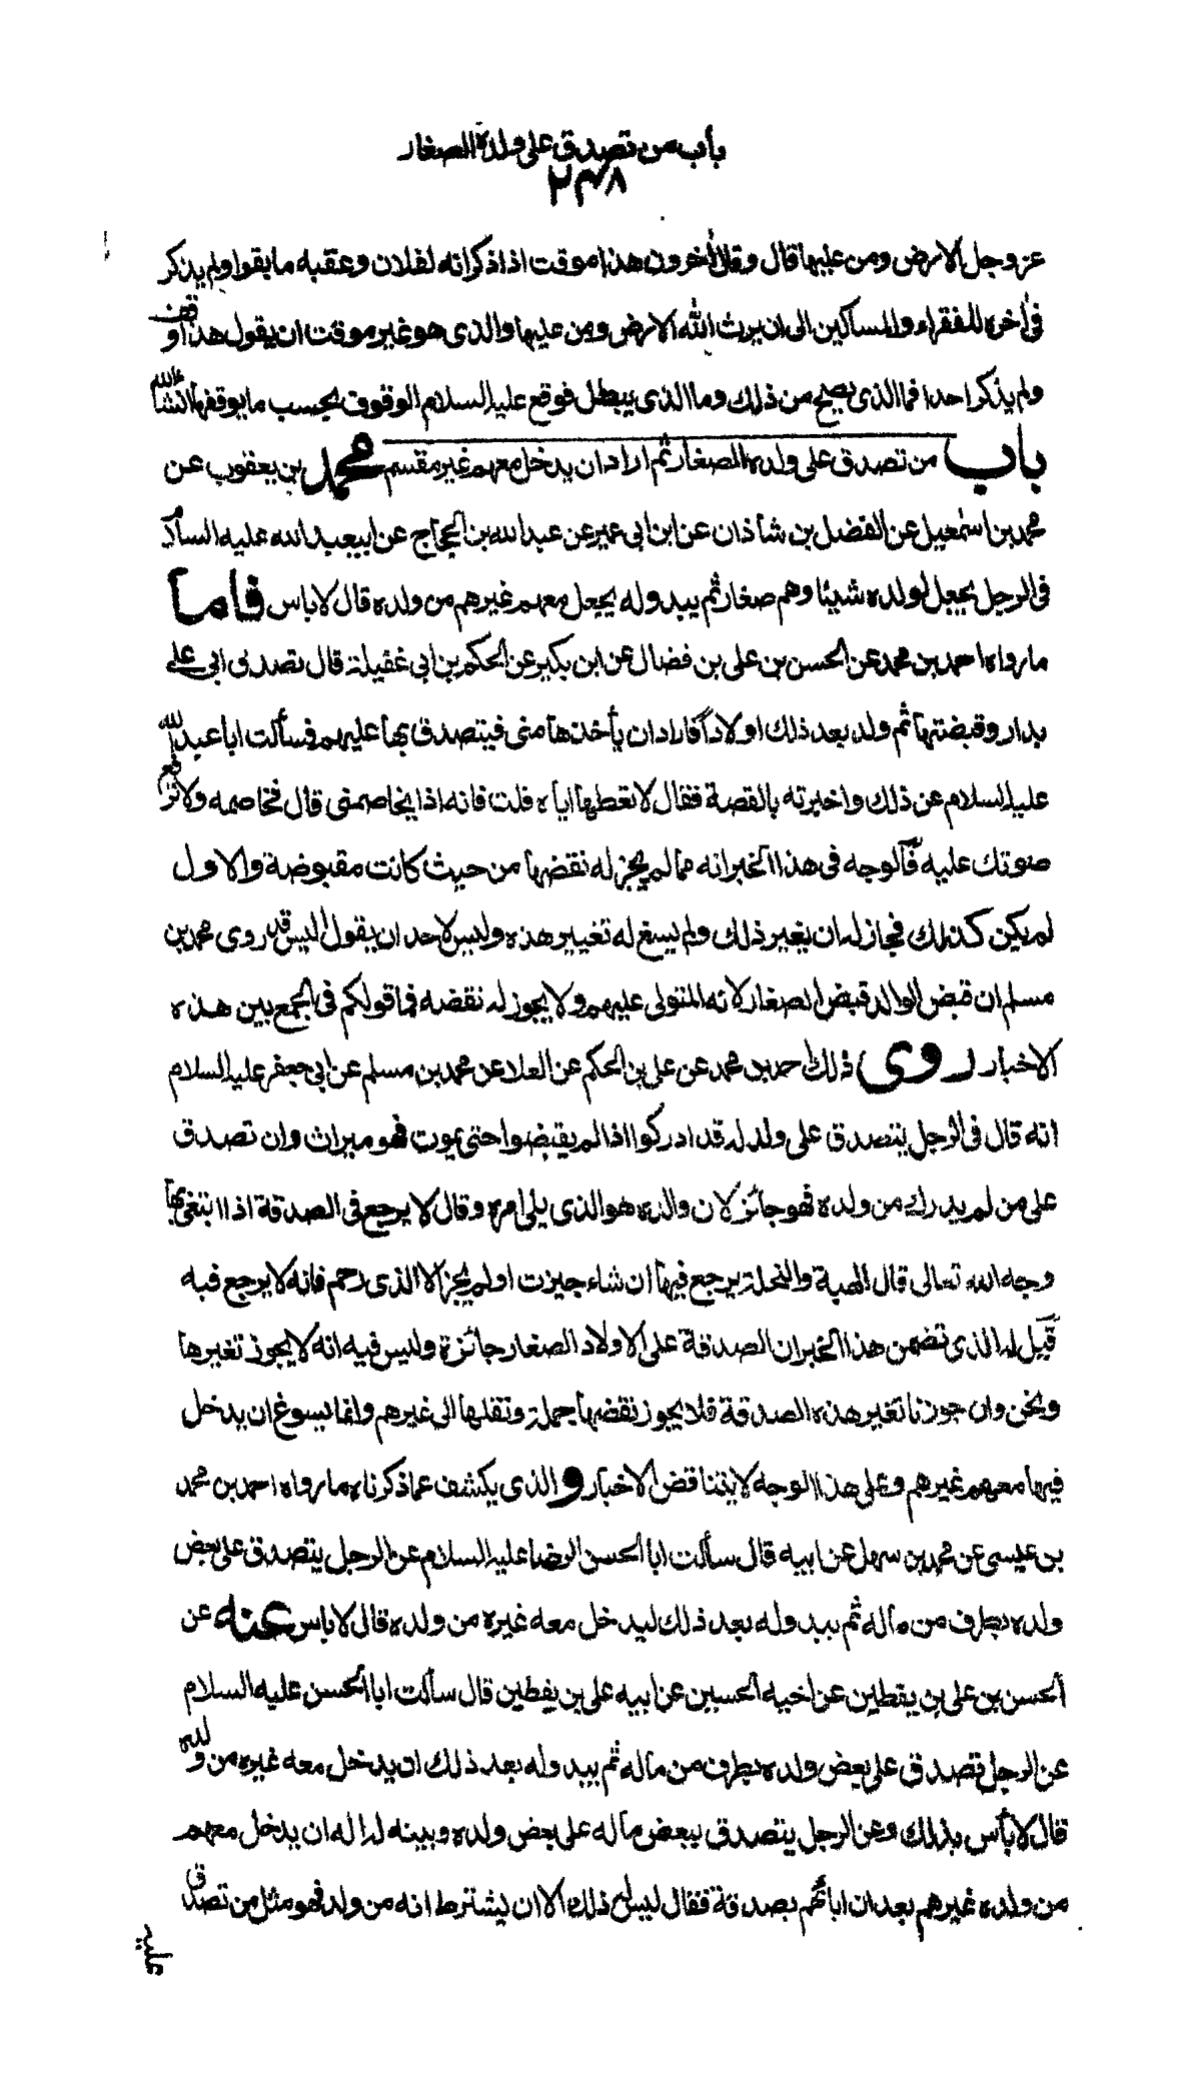 باب من تصدق على ولده الصغار
٢٣٨
عز وجل الارض ومن عليها قال وقال آخرون هذا موقت اذا ذكر انه لفلان وعقبه ما بقوا ولم يذكر
فى آخره للفقراء والمساكين الى ان يرث الله الارض ومن عليها والذى هو غير موقت ان يقول هذا وقف
ولم يذكر احدا فما الذى يصح من ذلك وما الذى يبطل فوقع عليه السلام الوقوف بحسب ما يوقفها انشاء الله
باب من تصدق على ولده الصغار ثم اراد ان يدخل معهم غير مقسم محمد بن يعقوب عن
محمد بن اسمعيل عن الفضل بن شاذان عن ابن ابى عمير عن عبد الله بن الحجاج عن ابيعبد الله عليه السلام
فى الرجل يجعل لولده شيئا وهم صغار ثم يبدو له يجعل معهم غيرهم من ولده قال لا باس فاما
ما رواه احمد بن محمد عن الحسن بن على بن فضال عن ابن بكير عن الحكم بن ابى غفيلة قال تصدق ابى على
بدار وقبضتها ثم ولد بعد ذلك اولاد فاراد ان يأخذها منى فيتصدق بها عليهم فسألت ابا عبد الله
عليه السلام عن ذلك واخبرته بالقصة فقال لا تعطها اياه قلت فانه اذا يخاصمنى قال فخاصمه ولا ترفع
صوتك عليه فالوجه فى هذا الخبر انه مما لم يجز له نقضها من حيث كانت مقبوضة والاول
لم يكن كذلك فجاز له ان يغير ذلك ولم يسغ له تغيير هذه وليس لاحد ان يقول اليس قد روى محمد بن
مسلم ان قبض الوالد قبض الصغار لانه المتولى عليهم ولا يجوز له نقضه فما قولكم فى الجمع بين هذه
الاخبار روى ذلك احمد بن محمد عن على بن الحكم عن العلا عن محمد بن مسلم عن ابى جعفر عليه السلام
انه قال فى الرجل يتصدق على ولد له قد ادركوا اذا لم يقبضوا حتى يموت فهو ميراث وان تصدق
على من لم يدرك من ولده فهو جائز لان والده هو الذى يلى امره وقال لا يرجع فى الصدقة اذا ابتغى بها
وجه الله تعالى قال الهبة والنحلة يرجع فيها ان شاء حيزت او لم يحز الا الذى رحم فانه لا يرجع فيه
قيل له الذى تضمن هذا الخبر ان الصدقة على الاولاد الصغار جائزة وليس فيه انه لا يجوز تغيرها
ونحن وان جوزنا تغير هذه الصدقة فلا يجوز نقضها جملة ونقلها الى غيرهم وانما يسوغ ان يدخل
فيها معهم غيرهم وعلى هذا الوجه لا يتناقض الاخبار والذى يكشف عما ذكرناه ما رواه احمد بن محمد
بن عيسى عن محمد بن سهل عن ابيه قال سألت ابا الحسن الرضا عليه السلام عن الرجل يتصدق على بعض
ولده بطرف من ماله ثم يبدو له بعد ذلك ليدخل معه غيره من ولده قال لا باس عنه عن
الحسن بن على بن يقطين عن اخيه الحسين عن ابيه على بن يقطين قال سألت ابا الحسن عليه السلام
عن الرجل تصدق على بعض ولده بطرف من ماله ثم يبدو له بعد ذلك ان يدخل معه غيره من ولده
قال لا بأس بذلك وعن الرجل يتصدق ببعض ماله على بعض ولده ويبينه له اله ان يدخل معهم
من ولده غيرهم بعد ان ابانهم بصدقة فقال ليس له ذلك الا ان يشترط انه من ولد فهو مثل من تصدق
عليه